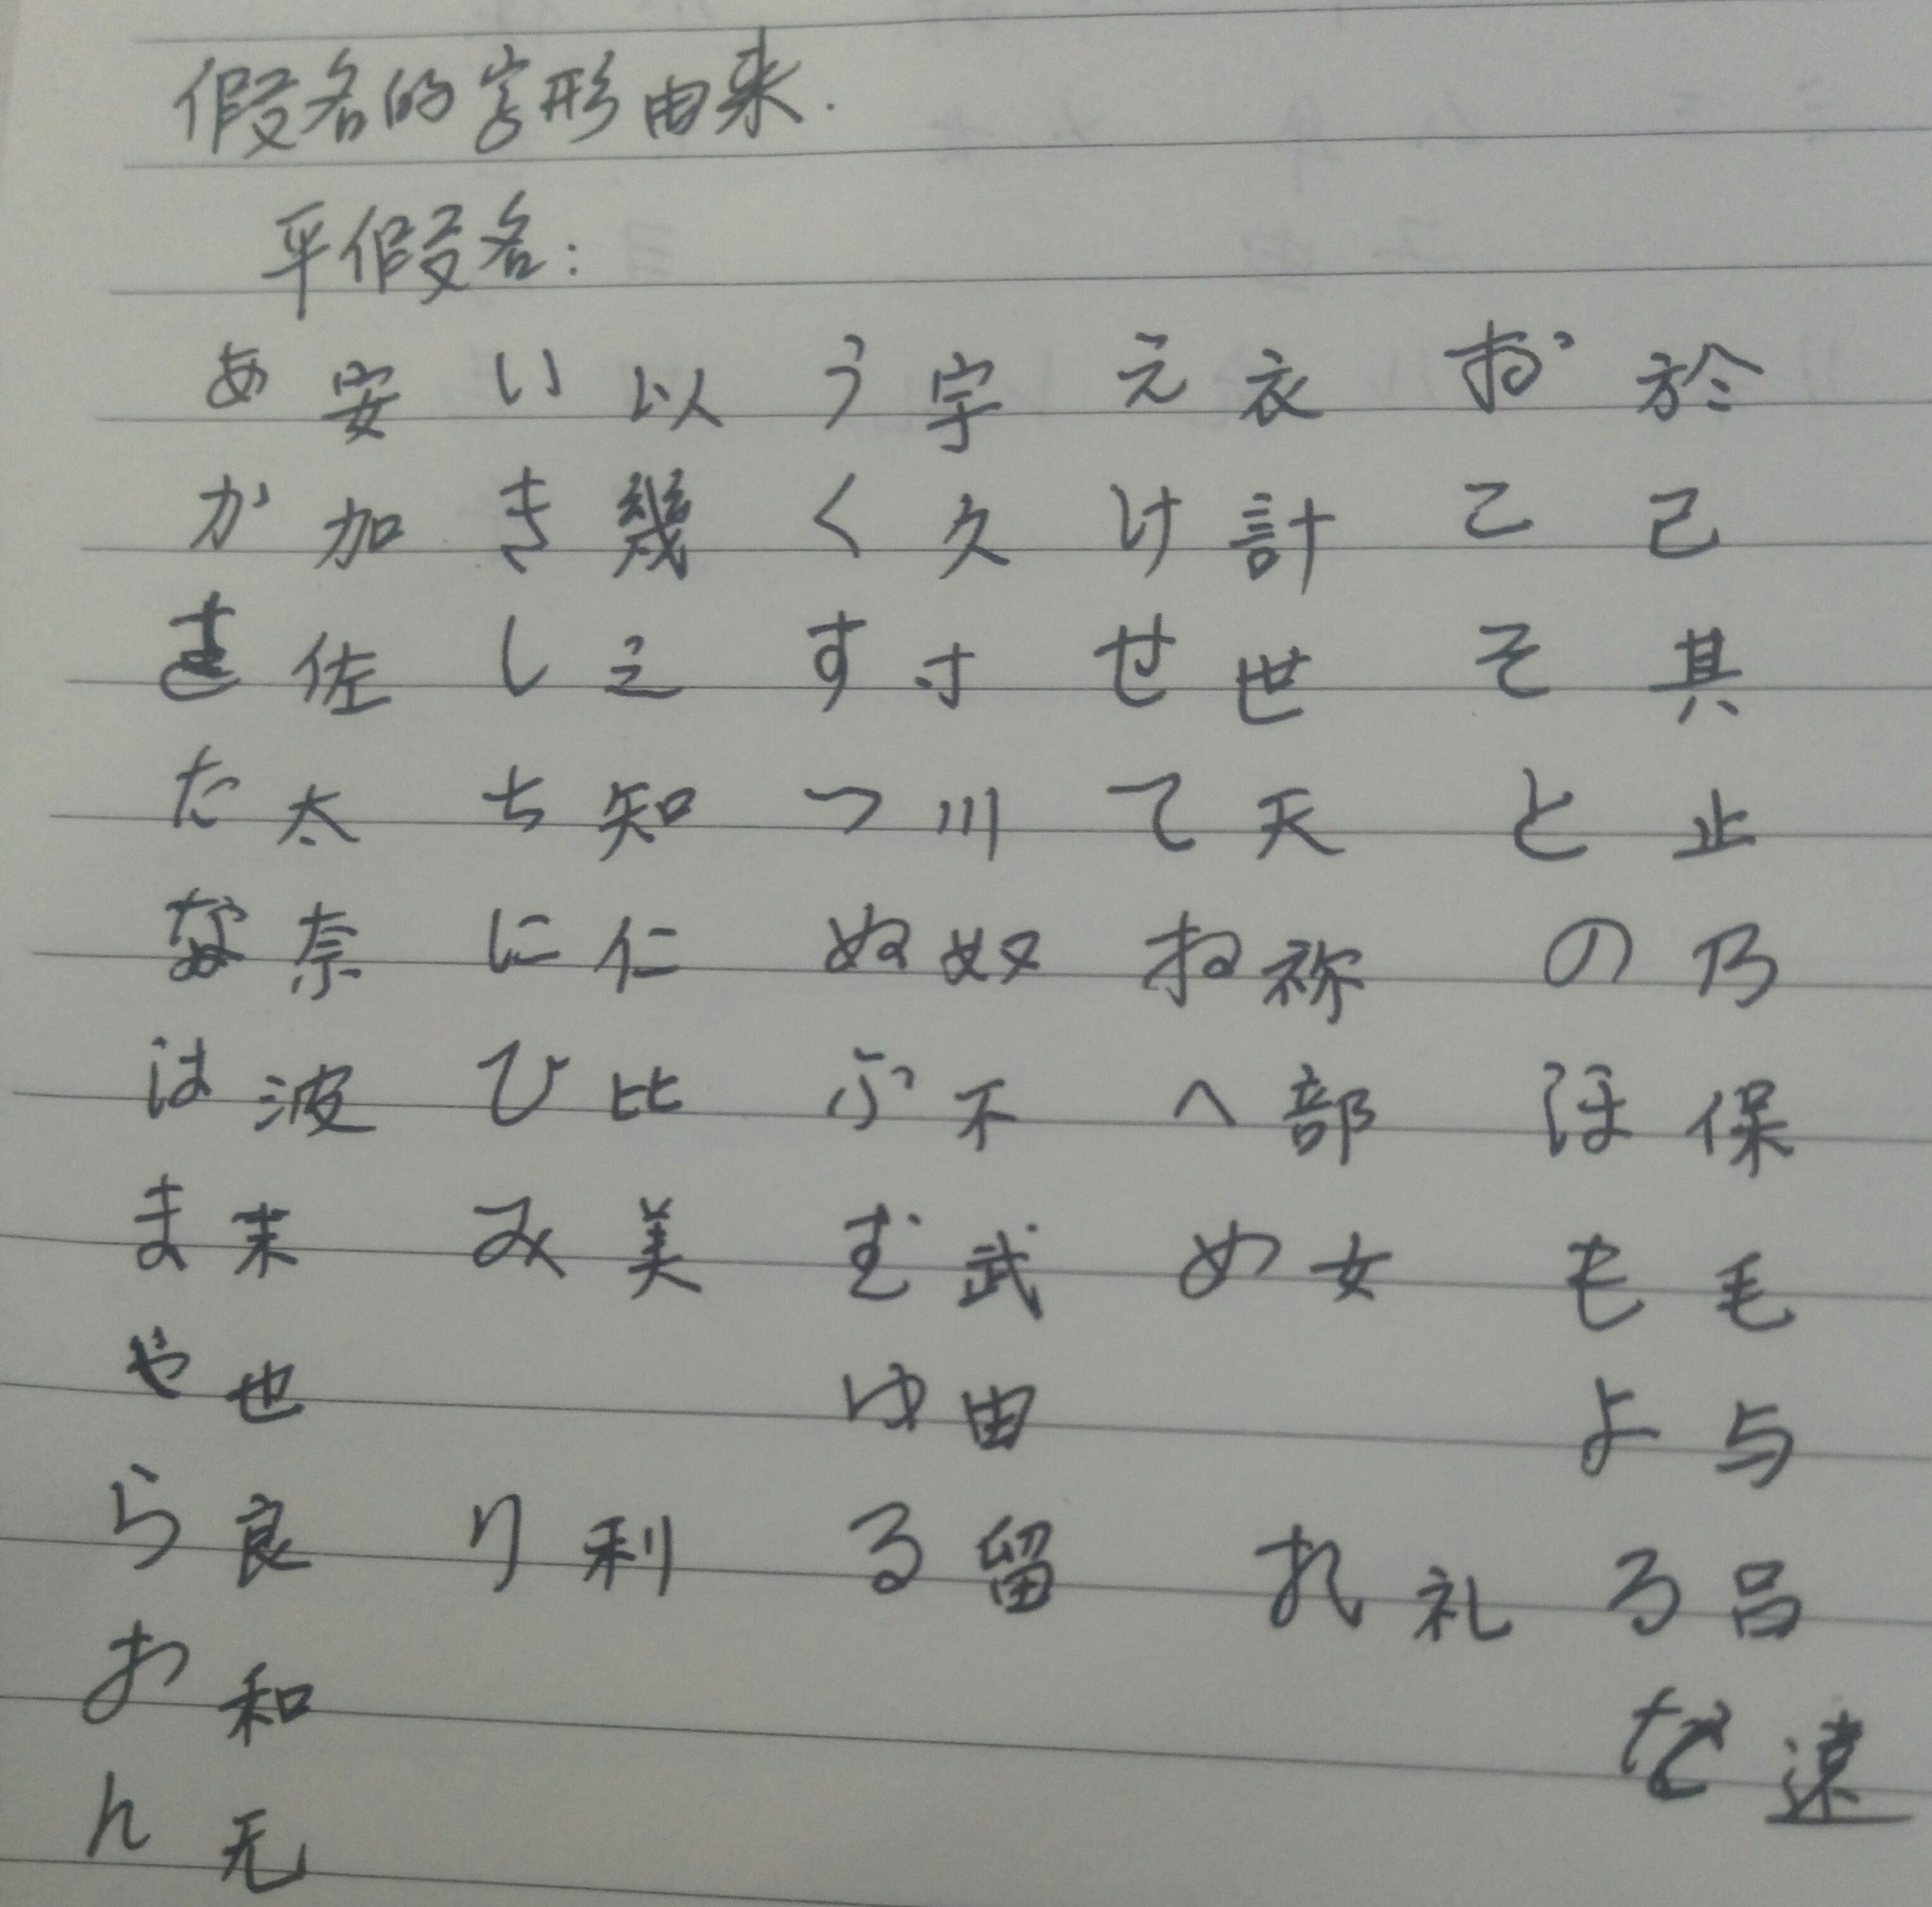 假名的字形由来.
平假名:
あ 安 い 以 う 宇 え 衣 お 於
か 加 き 幾 く 久 け 計 こ 己
さ 佐 し 之 す 寸 せ 世 そ 其
た 太 ち 知 つ 川 て 天 と 止
な 奈 に 仁 ぬ 奴 ね 祢 の 乃
は 波 ひ 比 ふ 不 へ 部 ほ 保
ま 末 み 美 む 武 め 女 も 毛
や 也 ゆ 由 よ 与
ら 良 り 利 る 留 れ 礼 ろ 呂
わ 和 を 遠
ん 无